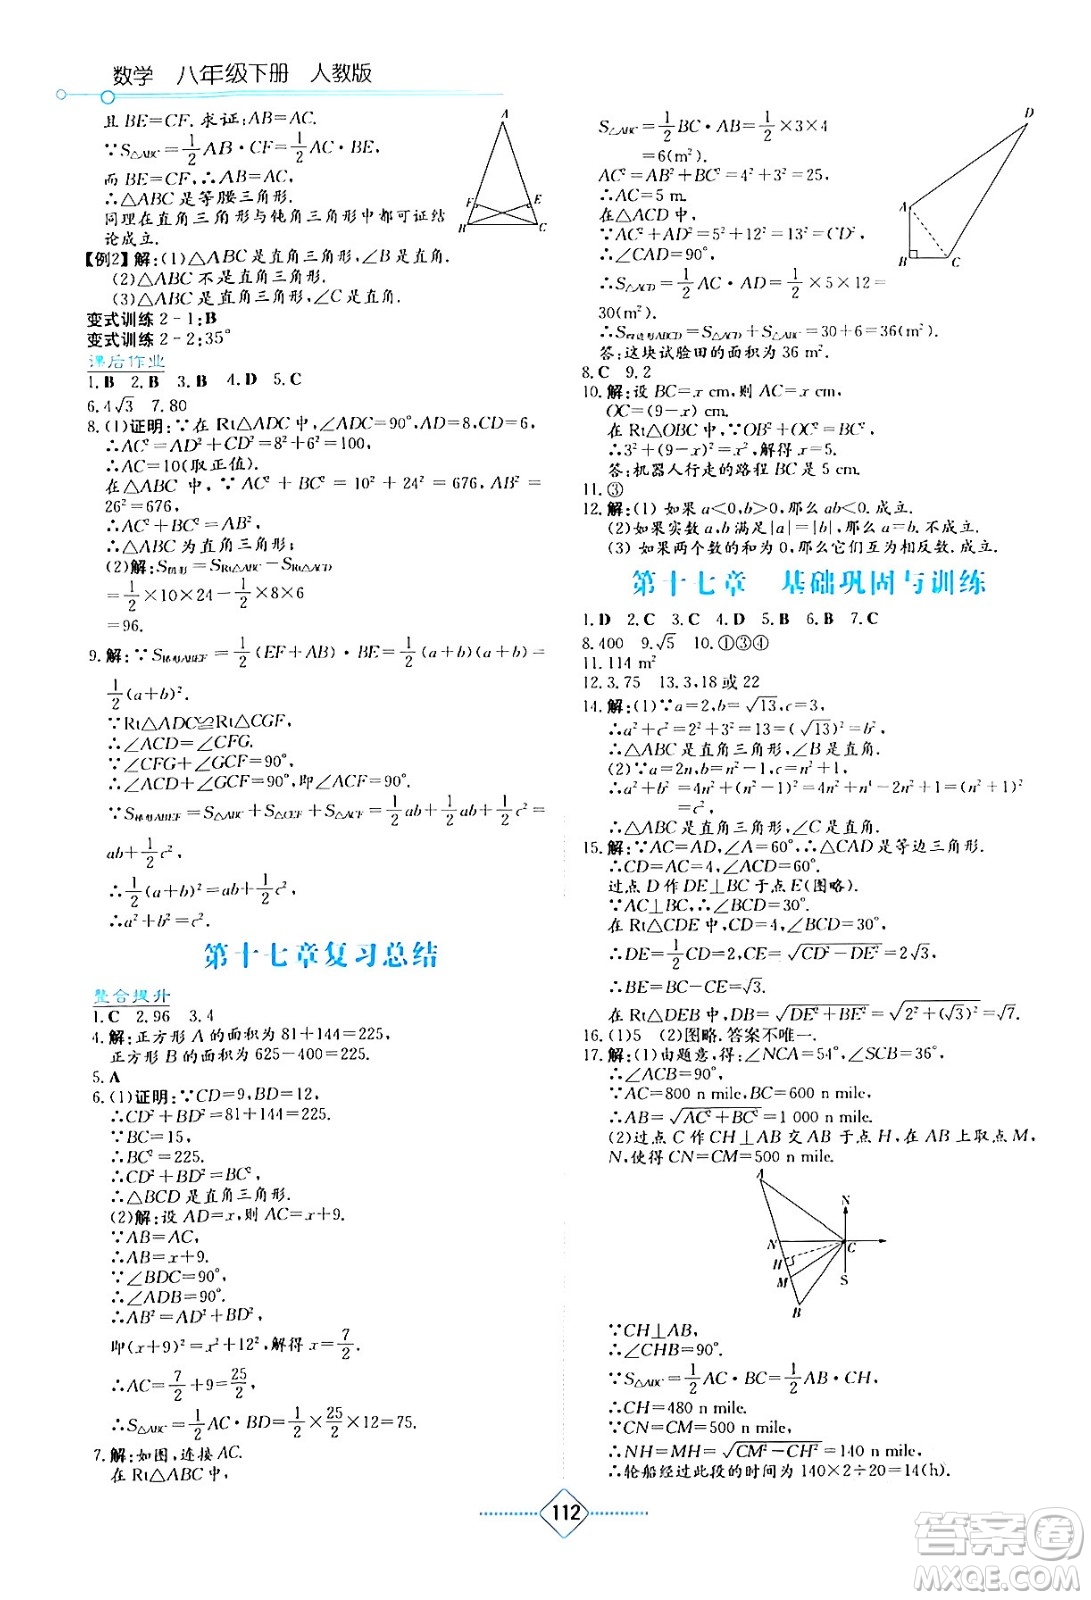 数学 八年级下册 人教版
且 BE=CF. 求证:AB=AC.
∵S△ABC=1/2 AB·CF=1/2 AC·BE,
而 BE=CF,∴AB=AC.
∴△ABC 是等腰三角形.
同理在直角三角形与钝角三角形中都可证结
论成立.
【例2】解:(1)△ABC 是直角三角形,∠B 是直角.
(2)△ABC 不是直角三角形.
(3)△ABC 是直角三角形,∠C 是直角.
变式训练 2-1:B
变式训练 2-2:35°
课后作业
1. B 2. B 3. B 4. D 5. C
6. 4√3 7. 80
8. (1)证明:∵在 Rt△ADC 中,∠ADC=90°,AD=8,CD=6,
∴AC²=AD²+CD²=8²+6²=100,
∴AC=10(取正值).
在△ABC 中,∵AC²+BC²=10²+24²=676,AB²=
26²=676,
∴AC²+BC²=AB²,
∴△ABC 为直角三角形;
(2)解:S阴影=SRt△ABC-SRt△ACD
=1/2×10×24-1/2×8×6
=96.
9. 解:∵S梯形ABEF=1/2(EF+AB)·BE=1/2(a+b)·(a+b)=
1/2(a+b)².
∵Rt△ADC≌Rt△CGF,
∴∠ACD=∠CFG.
∵∠CFG+∠GCF=90°,
∴∠ACD+∠GCF=90°,即∠ACF=90°.
∵S梯形ABEF=S△ABC+S△CEF+S△ACF=1/2ab+1/2ab+1/2c²=
ab+1/2c²,
∴1/2(a+b)²=ab+1/2c²,
∴a²+b²=c².
第十七章复习总结
整合提升
1. C 2. 96 3. 4
4. 解:正方形 A 的面积为 81+144=225,
正方形 B 的面积为 625-400=225.
5. A
6. (1)证明:∵CD=9,BD=12,
∴CD²+BD²=81+144=225.
∵BC=15,
∴BC²=225.
∴CD²+BD²=BC².
∴△BCD 是直角三角形.
(2)解:设 AD=x,则 AC=x+9.
∵AB=AC,
∴AB=x+9.
∵∠BDC=90°,
∴∠ADB=90°.
∴AB²=AD²+BD²,
即(x+9)²=x²+12²,解得 x=7/2.
∴AC=7/2+9=25/2.
∴S△ABC=1/2AC·BD=1/2×25/2×12=75.
7. 解:如图,连接 AC.
在 Rt△ABC 中,
A
F
E
B
C
S△ABC=1/2BC·AB=1/2×3×4
=6(m²).
AC²=AB²+BC²=4²+3²=25,
∴AC=5 m.
在△ACD 中,
∵AC²+AD²=CD²,
∴∠CAD=90°.
∴S△ACD=1/2AC·AD=1/2×5×12=
30(m²).
∴S四边形ABCD=S△ABC+S△ACD=6+30=36(m²).
答:这块试验田的面积为 36 m².
D
A
B
C
8. C 9. 2
10. 解:设 BC=x cm,则 AC=x cm,
OC=(9-x) cm.
在 Rt△OBC 中,∵OB²+OC²=BC²,
∴3²+(9-x)²=x²,解得 x=5.
答:机器人行走的路程 BC 是 5 cm.
11. ③
12. 解:(1) 如果 a<0,b>0,那么 ab<0. 成立.
(2)如果实数 a,b 满足|a|=|b|,那么 a=b. 不成立.
(3) 如果两个数的和为 0,那么它们互为相反数. 成立.
第十七章 基础巩固与训练
1. D 2. C 3. C 4. D 5. B 6. B 7. C
8. 400 9. √5 10. ①③④
11. 114 m²
12. 3.75 13. 3,18 或 22
14. 解:(1)∵a=2,b=√13,c=3,
∴a²+c²=2²+3²=13=(√13)²=b²,
∴△ABC 是直角三角形,∠B 为直角.
(2)∵a=2n,b=n²-1,c=n²+1,
∴a²+b²=4n²+(n²-1)²=4n²+n⁴-2n²+1=n⁴+2n²
+1=(n²+1)²=c²,
∴△ABC 是直角三角形,∠C 为直角.
15. 解:∵AC=AD,∠A=60°,∴△CAD 是等边三角形.
∴CD=AC=4,∠ACD=60°.
过点 D 作 DE⊥BC 于点 E(图略).
∵AC⊥BC,∴∠DCE=30°.
在 Rt△CDE 中,CD=4,∠DCE=30°,
∴DE=1/2CD=2,CE=√CD²-DE²=2√3.
∴BE=BC-CE=√3.
在 Rt△DEB 中,DB=√DE²+BE²=√2²+(√3)²=√7.
16. (1)5 (2)图略. 答案不唯一.
17. 解:(1)由题意,得∠NCA=54°,∠SCB=36°,
∴∠ACB=90°.
∵AC=800 n mile,BC=600 n mile,
∴AB=√AC²+BC²=1 000 n mile.
(2)过点 C 作 CH⊥AB 交 AB 于点 H,在 AB 上取点 M,
N,使得 CN=CM=500 n mile.
A
N
N
C
H
M
S
B
∵CH⊥AB,
∴∠CHB=90°.
∵S△ABC=1/2AC·BC=1/2AB·CH,
∴CH=480 n mile.
∵CN=CM=500 n mile,
∴NH=MH=√CM²-CH²=140 n mile.
∴轮船经过此段的时间为 140×2÷20=14(h).
112
答案圈
MXQE.COM